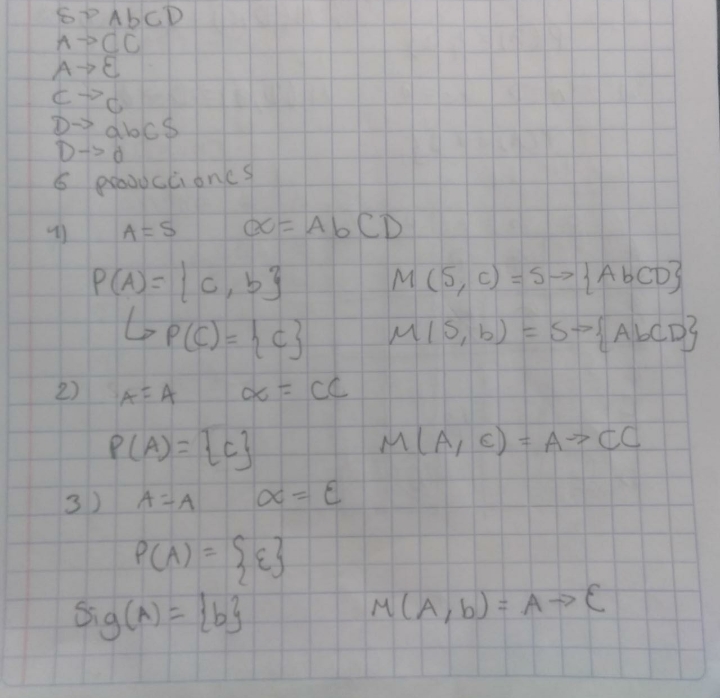 S→ AbCD
A→CC
A→ε
C→c
D→ abCS
D→d
6 producciones
1) A=S α= AbCD
P(A)= {c, b} M(S, c) = S→{AbCD}
↳P(C)= {c} M(S, b) = S→{AbCD}
2) A=A α= CC
P(A)= {c} M(A, c) = A→CC
3) A=A α= ε
P(A)= {ε}
Sig(A)= {b} M(A, b)= A→ ε